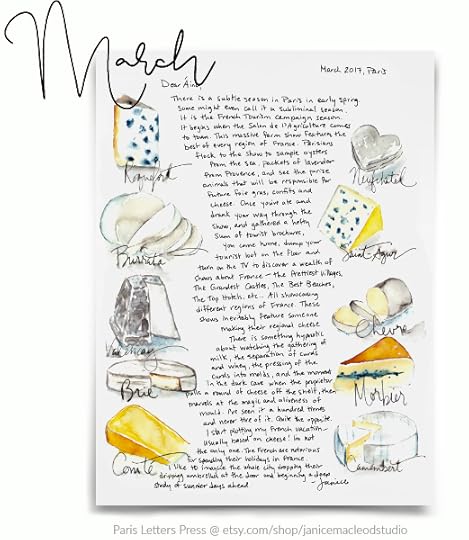 March
March 2017, Paris
Dear Áine,
There is a subtle season in Paris in early spring.
Some might even call it a subliminal season.
It is the French Tourism campaign season.
It begins when the Salon de l'Agriculture comes
to town. This massive farm show features the
best of every region of France. Parisians
flock to the show to sample oysters
from the sea, packets of lavender
from Provence, and see the prize
animals that will be responsible for
future foie gras, confits and
cheese. Once you've ate and
drank your way through the
show, and gathered a hefty
sum of tourist brochures,
you come home, dump your
tourist loot on the floor and
turn on the TV to discover a wealth of
shows about France - the Prettiest Villages,
The Grandest Castles, The Best Beaches,
The Top Hotels, etc... All showcasing
different regions of France. These
shows inevitably feature someone
making their regional cheese.
There is something hypnotic
about watching the gathering of
milk, the separation of curds
and whey, the pressing of the
curds into molds, and the moment
in the dark cave when the proprietor
pulls a round of cheese off the shelf, then
marvels at the magic and aliveness of
mould. I've seen it a hundred times
and never tire of it. Quite the opposite.
I start plotting my French vacation -
usually based on cheese! I'm not
the only one. The French are notorious
for spending their holidays in France.
I like to imagine the whole city dropping their
dripping umbrellas at the door and beginning a deep
study of summer days ahead.
- Janice
Roquefort
Neufchâtel
Burrata
Saint Agur
Valençay
Chèvre
Brie
Morbier
Comté
Camembert
Paris Letters Press @ etsy.com/shop/janicemacleodstudio